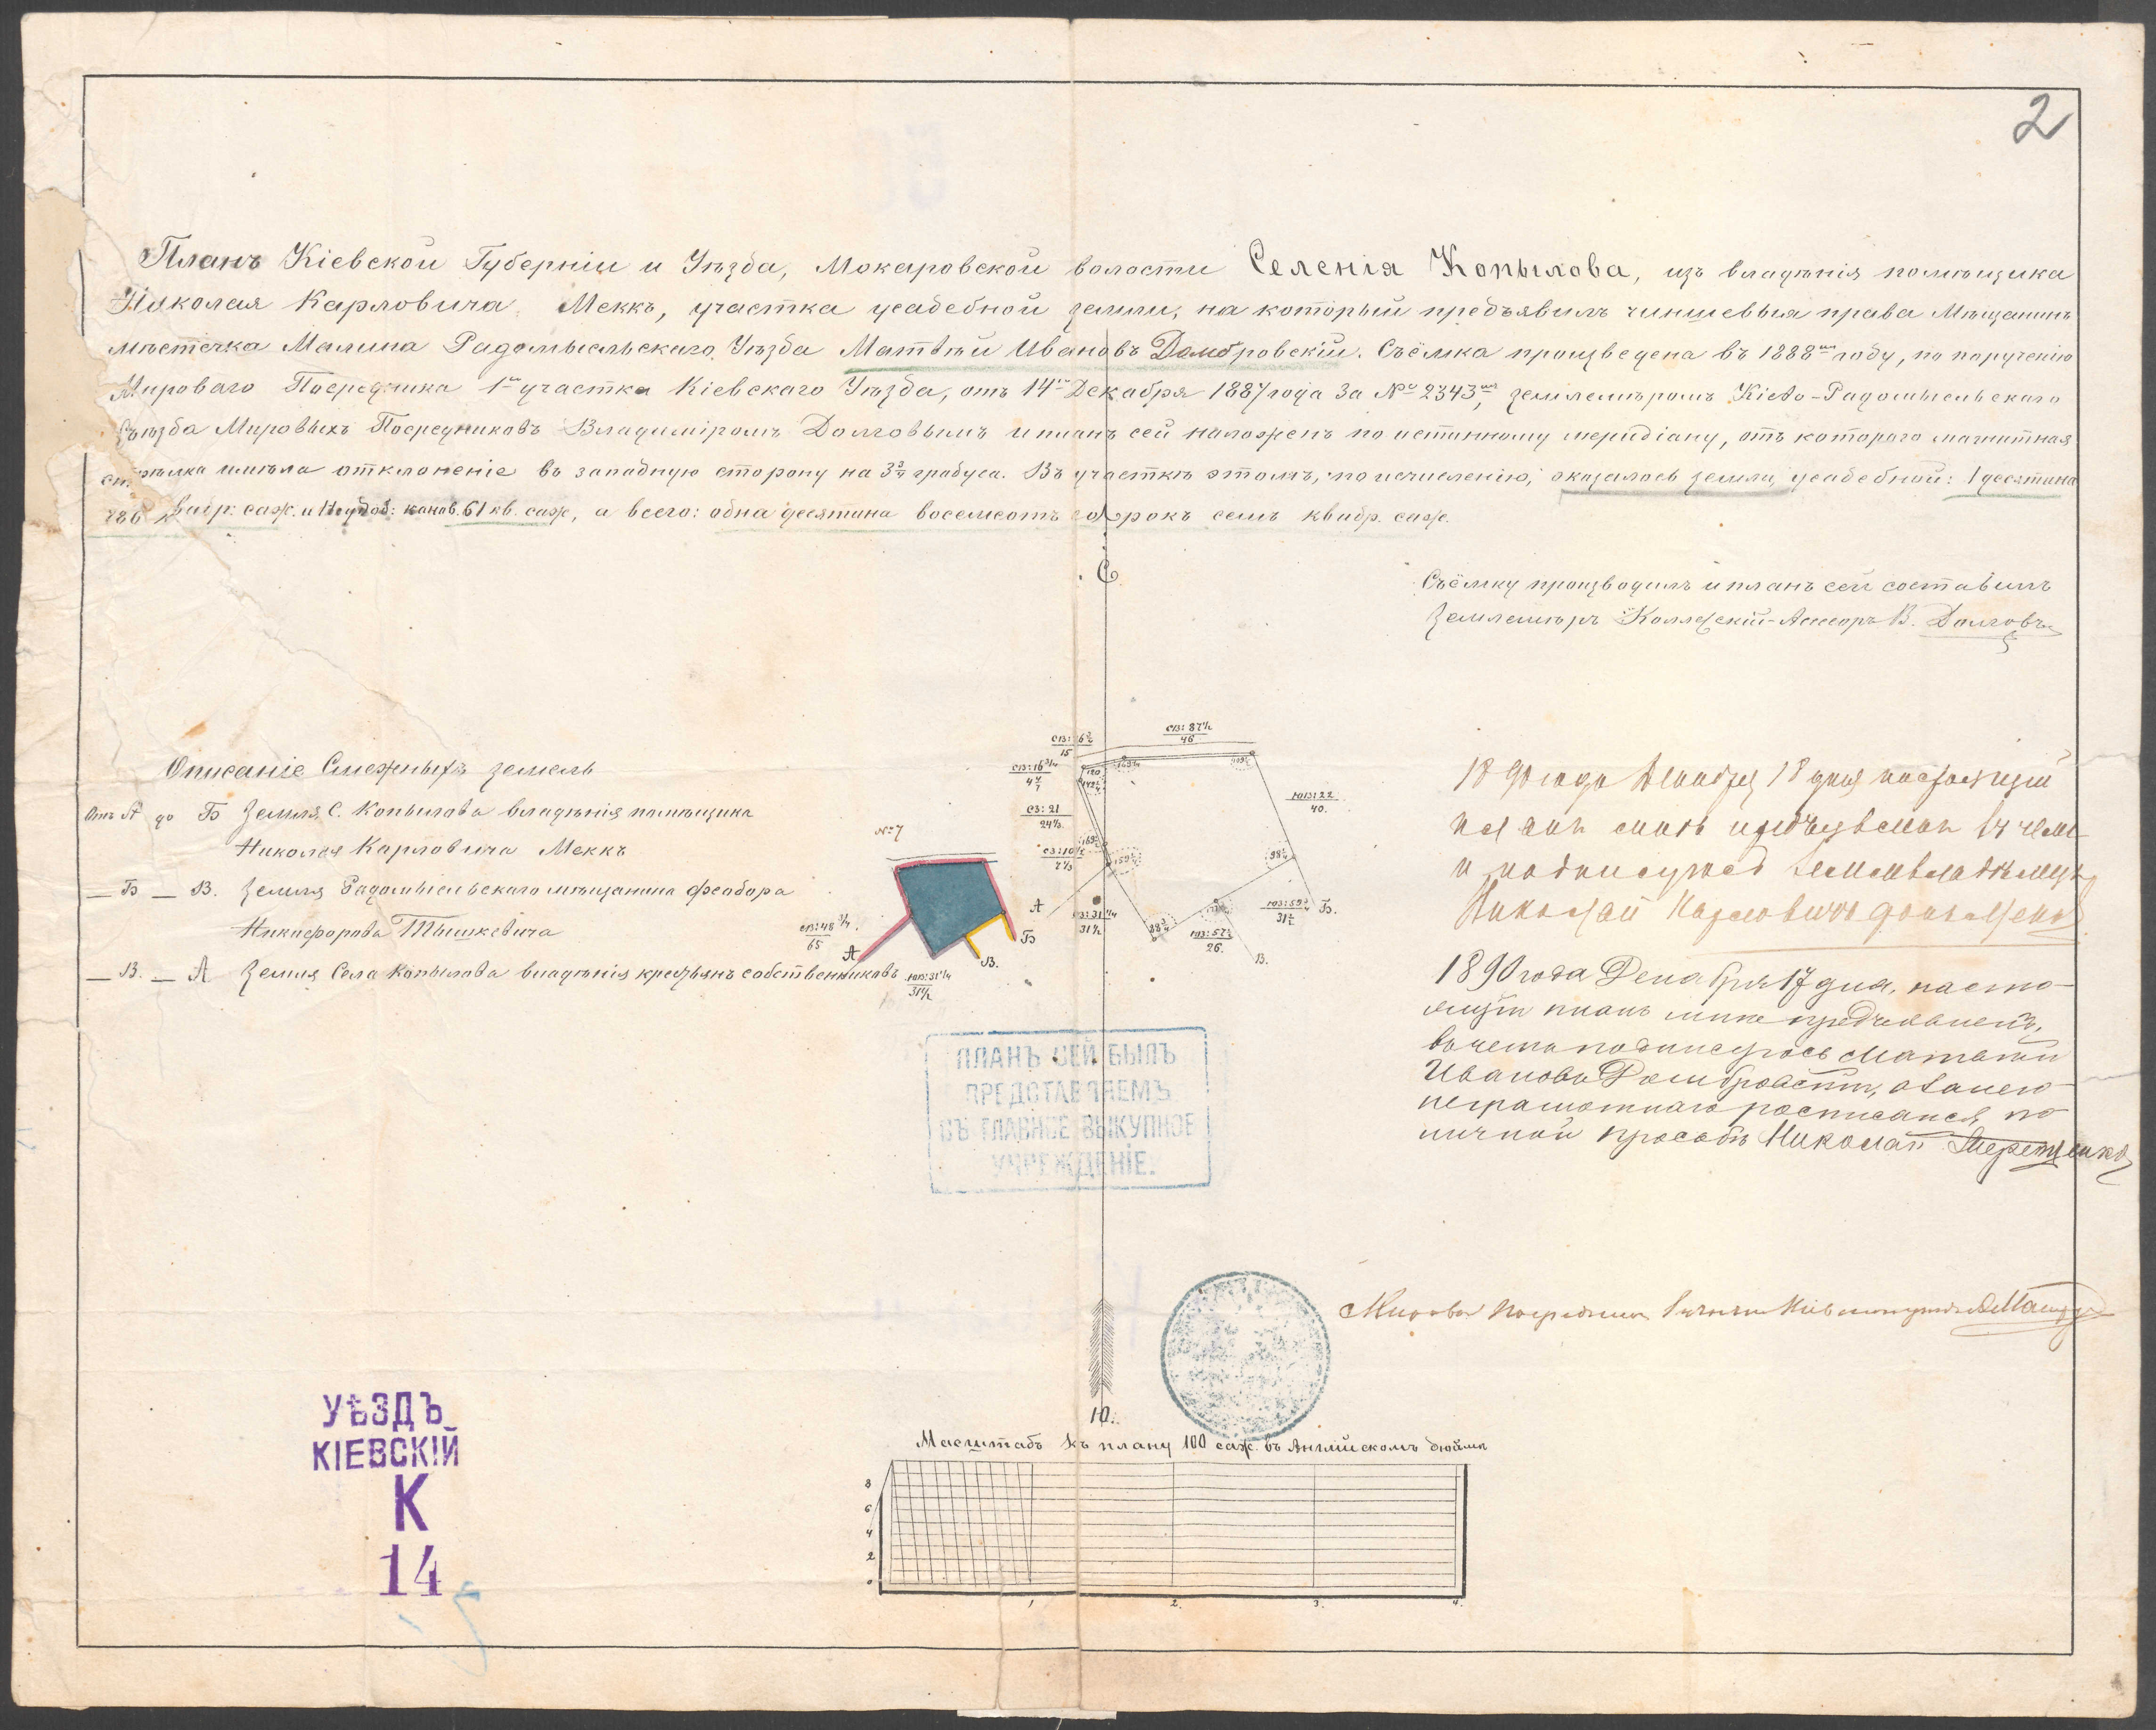 2
Планъ Кіевской Губерніи и Уѣзда, Макаровской волости Селенія Копылова, изъ владѣнія помѣщика
Николая Карловича Меккъ, участка усадебной земли, на который предъявилъ чиншевыя права Мѣщанинъ
мѣстечка Малина Радомысльскаго Уѣзда Матвѣй Ивановъ Домбровскій. Съёмка произведена въ 1888мъ году, по порученію
Мироваго Посредника 1го участка Кіевскаго Уѣзда, отъ 14го Декабря 1887 года За № 2343мъ, землемѣромъ Кіево-Радомысльскаго
Съѣзда Мировыхъ Посредниковъ Владиміромъ Долговымъ и планъ сей наложенъ по истинному меридіану, отъ котораго магнитная
стрѣлка имѣла отклоненіе въ западную сторону на 3¾ градуса. Въ участкѣ этомъ, по исчисленію, оказалось земли усадебной: 1 десятина
786 квадр: саж. и Неудоб: канав. 61 кв. саж, а всего: одна десятина восемсотъ сорокъ семь квадр. саж.
С.
Съёмку производилъ и планъ сей составилъ
Землемѣръ Коллежскій-Ассесоръ В. Долговъ
Описаніе Смежныхъ земель
Отъ А до Б Земля С. Копылова владѣнія помѣщика
Николая Карловича Меккъ
— Б — В. Земля Радомысльскаго мѣщанина Феодора
Никифорова Тышкевича
— В. — А Земля Села Копылова владѣнія крестьянъ собственниковъ
№ 7
А
Б
В.
СВ: 48¾
65
ЮЗ: 31¼
31½
СВ: 87½
46
15
СВ: 16¾
СЗ: 21
24⅓
СЗ: 10½
ЮВ: 22
40.
ЮЗ: 59¾
31½
ЮЗ: 57½
26.
А
Б.
В.
18 дня настоящій
Николай Карловичъ фонъ Меккъ
1890 года Декабря 17 дня, насто-
ящій планъ мнѣ предъявленъ,
въ чемъ подписуюсь Матвѣй
Ивановъ Домбровскій, а за него
неграмотнаго росписался по
личной просьбѣ Николай Терещенко
ПЛАНЪ СЕЙ БЫЛЪ
ПРЕДСТАВЛЯЕМЪ
ВЪ ГЛАВНОЕ ВЫКУПНОЕ
УЧРЕЖДЕНІЕ.
Мировой Посредникъ
Ю.
УѢЗДЪ
КІЕВСКІЙ
К
14
Масштабъ къ плану 100 саж. въ Англійскомъ дюймѣ
8
6
4
2
0
1
2.
3.
4.